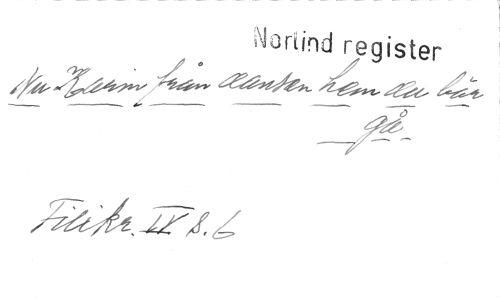 Norlind register
Nu Karin från dansen hem du bör
gå
Filikr. IX s. 6